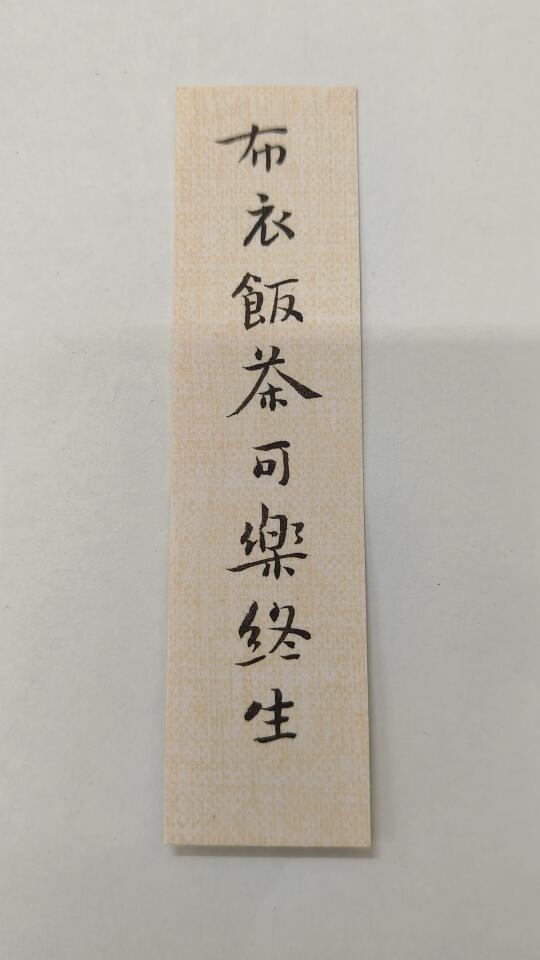 布衣飯茶可樂終生